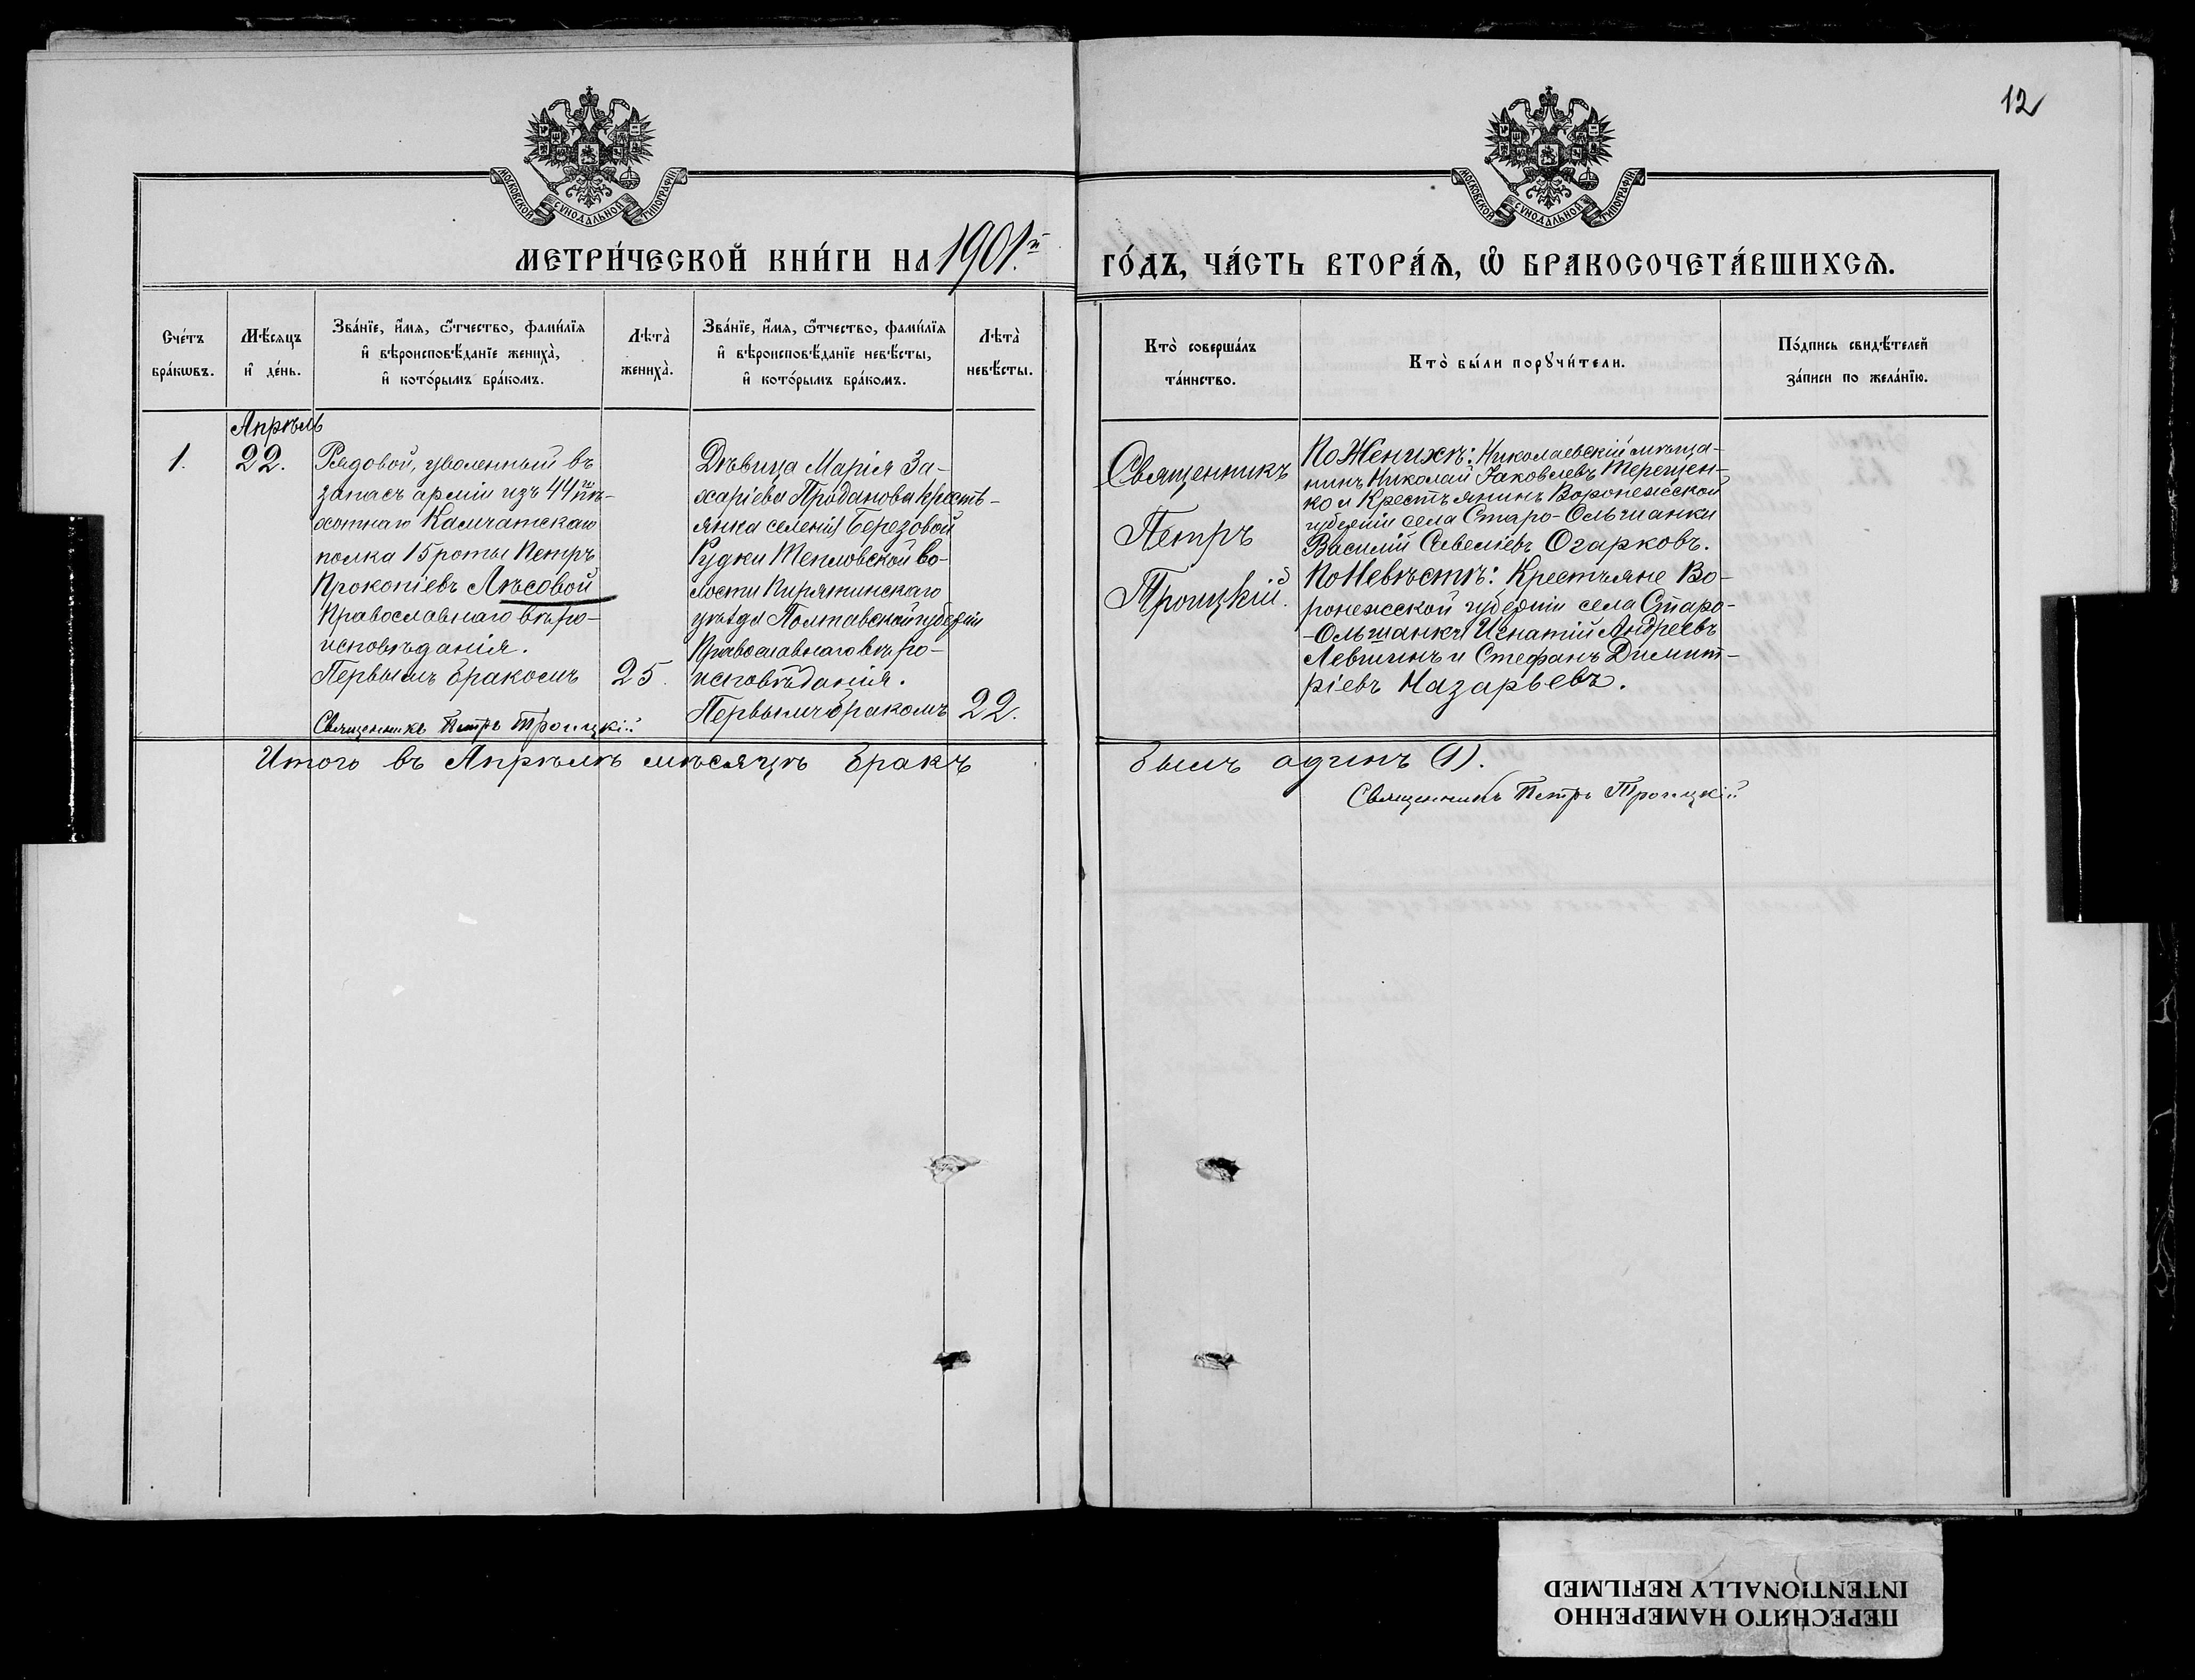 12
МОСКОВСКОЙ СУНОДАЛЬНОЙ ТИПОГРАФІИ
МОСКОВСКОЙ СУНОДАЛЬНОЙ ТИПОГРАФІИ
МЕТРИ́ЧЕСКОЙ КНИ́ГИ НА 1901.й
ГО́ДЪ, ЧА́СТЬ ВТОРА́Ѧ, Ѡ҆ БРАКОСОЧЕТА́ВШИХСѦ.
Сче́тъ
бра́кѡвъ.
Мѣ́сяцъ
и҆ де́нь.
Зва́нїе, и҆́мя, ѻ҆́тчество, фами́лїя
и҆ вѣроисповѣ́данїе жениха̀,
и҆ кото́рымъ бра́комъ.
Лѣта̀
жениха̀.
Зва́нїе, и҆́мя, ѻ҆́тчество, фами́лїя
и҆ вѣроисповѣ́данїе невѣ́сты,
и҆ кото́рымъ бра́комъ.
Лѣта̀
невѣ́сты.
Кто̀ соверша́лъ
та́инство.
Кто̀ бы́ли порꙋчи́тели.
По́дпись свидѣ́телей
за́писи по жела́нїю.
1.
Апрѣль
22.
Рядовой, уволенный въ
запасъ арміи изъ 44 пѣ-
хотнаго Камчатскаго
полка 15 роты Петръ
Прокопіевъ Лѣсовой
Православнаго вѣро-
исповѣданія.
Первымъ бракомъ
25.
Священникъ Петръ Троицкій
Дѣвица Марія За-
харіева Проданова кресть-
янка селенія Березовой
Рудки Тепловской во-
лости Пирятинскаго
уѣзда Полтавской губерніи
Православнаго вѣро-
исповѣданія.
Первымъ бракомъ
22.
Священникъ
Петръ
Троицкій.
По Женихѣ: Николаевскій мѣща-
нинъ Николай Іаковлевъ Терещен-
ко и Крестьянинъ Воронежской
губерніи села Старо-Ольшанки
Василій Савеліевъ Огарковъ.
По Невѣстѣ: Крестьяне Во-
ронежской губерніи села Старо-
-Ольшанки Игнатій Андреевъ
Левшинъ и Стефанъ Димит-
ріевъ Назарьевъ.
Итого въ Апрѣлѣ мѣсяцѣ бракъ
былъ одинъ (1).
Священникъ Петръ Троицкій
ПЕРЕСНЯТО НАМЕРЕННО
INTENTIONALLY REFILMED